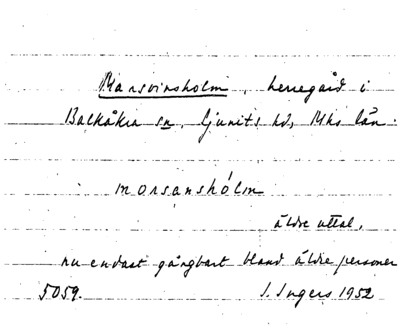 Marsvinsholm, herregård i
Balkåkra sn, Ljunits hd, Mhs län.
marsanshólm
äldre uttal,
nu endast gångbart bland äldre personer
5059. I. Ingers 1952